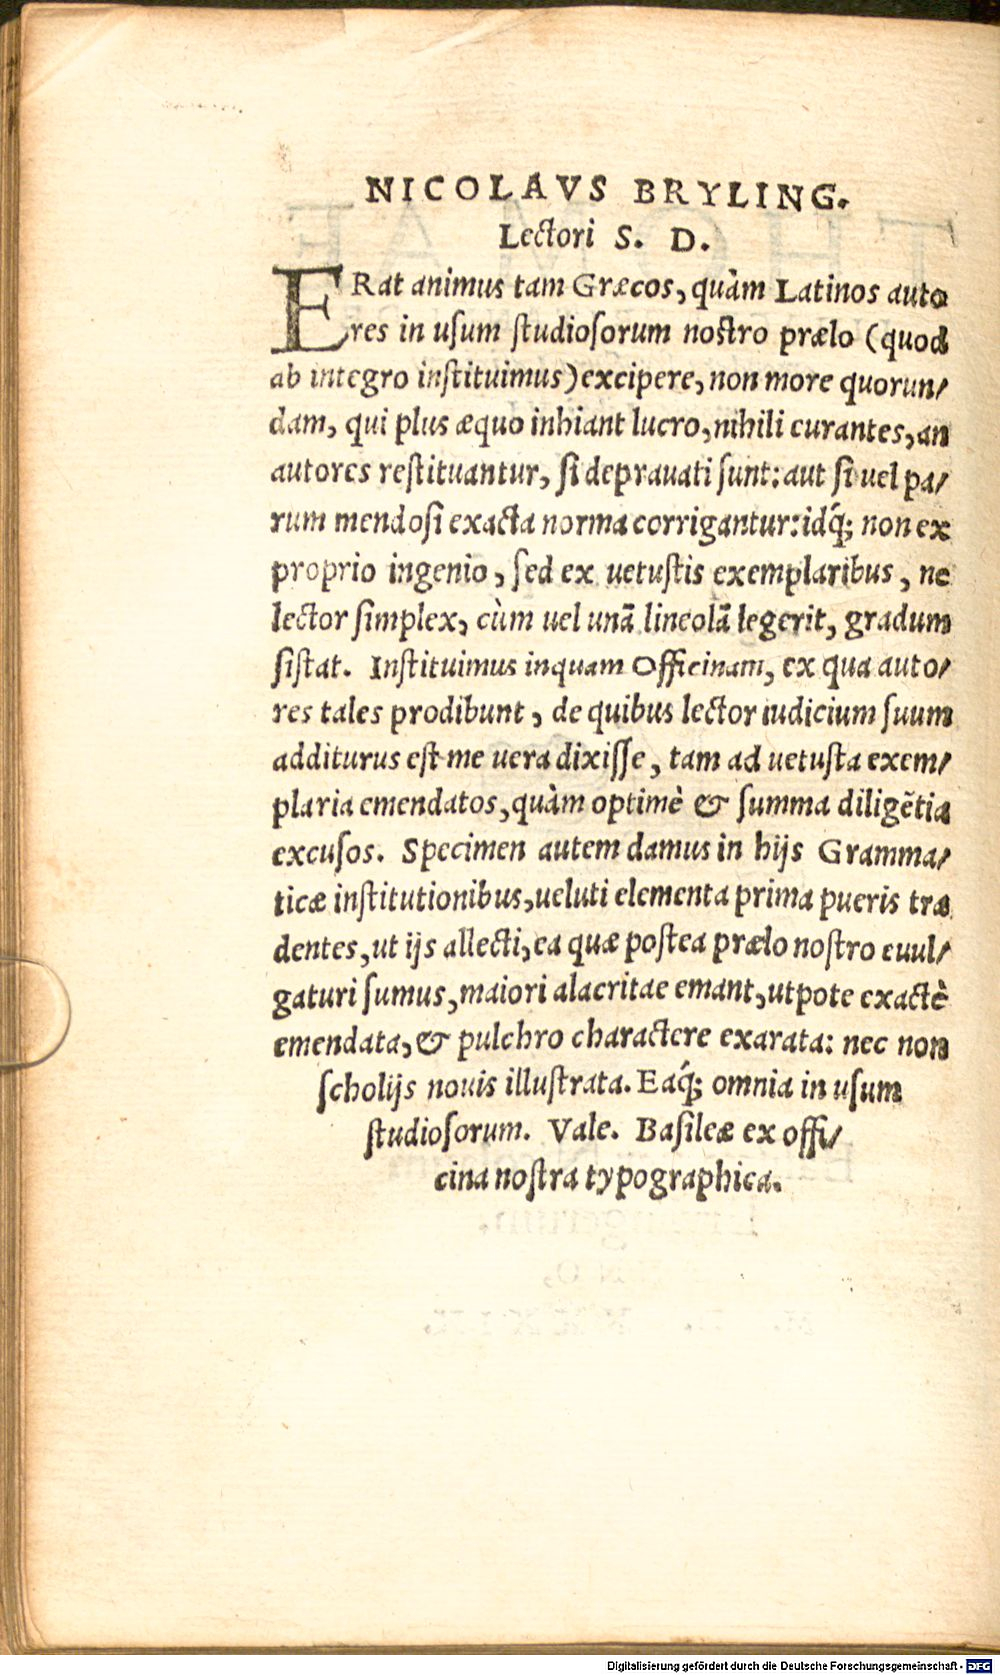 NICOLAVS BRYLING.
Lectori S. D.
ERat animus tam Græcos, quàm Latinos auto
res in uſum ſtudioſorum noſtro prælo (quod
ab integro inſtituimus) excipere, non more quorun/
dam, qui plus æquo inhiant lucro, nihili curantes, an
autores reſtituantur, ſi deprauati ſunt: aut ſi uel pa/
rum mendoſi exacta norma corrigantur: idq́; non ex
proprio ingenio, ſed ex uetuſtis exemplaribus, ne
lector ſimplex, cùm uel unā lineolā legerit, gradum
ſiſtat. Inſtituimus inquam Officinam, ex qua auto/
res tales prodibunt, de quibus lector iudicium ſuum
additurus eſt me uera dixiſſe, tam ad uetuſta exem/
plaria emendatos, quàm optimè & ſumma diligẽtia
excuſos. Specimen autem damus in hijs Gramma/
ticæ inſtitutionibus, ueluti elementa prima pueris tra
dentes, ut ijs allecti, ea quæ poſtea prælo noſtro euul/
gaturi ſumus, maiori alacritae emant, utpote exactè
emendata, & pulchro charactere exarata: nec non
ſcholijs nouis illuſtrata. Eaq́; omnia in uſum
ſtudioſorum. Vale. Baſileæ ex offi/
cina noſtra typographica.
Digitalisierung gefördert durch die Deutsche Forschungsgemeinschaft - DFG